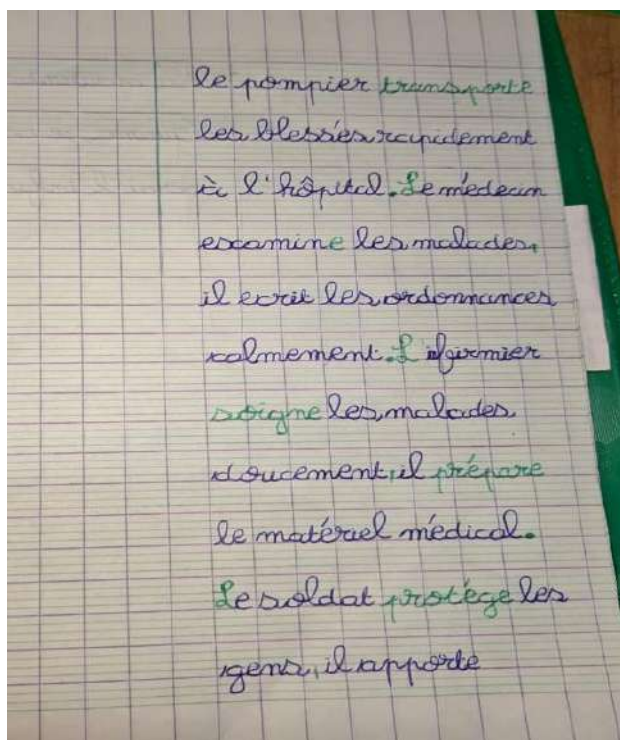 le pompier transporte
les blessés rapidement
à l'hôpital. Le médecin
examine les malades,
il ecrit les ordonnances
calmement. L'ifirmier
soigne les malades
doucement, il prépare
le matériel médical.
Le soldat protège les
gens, il apporte